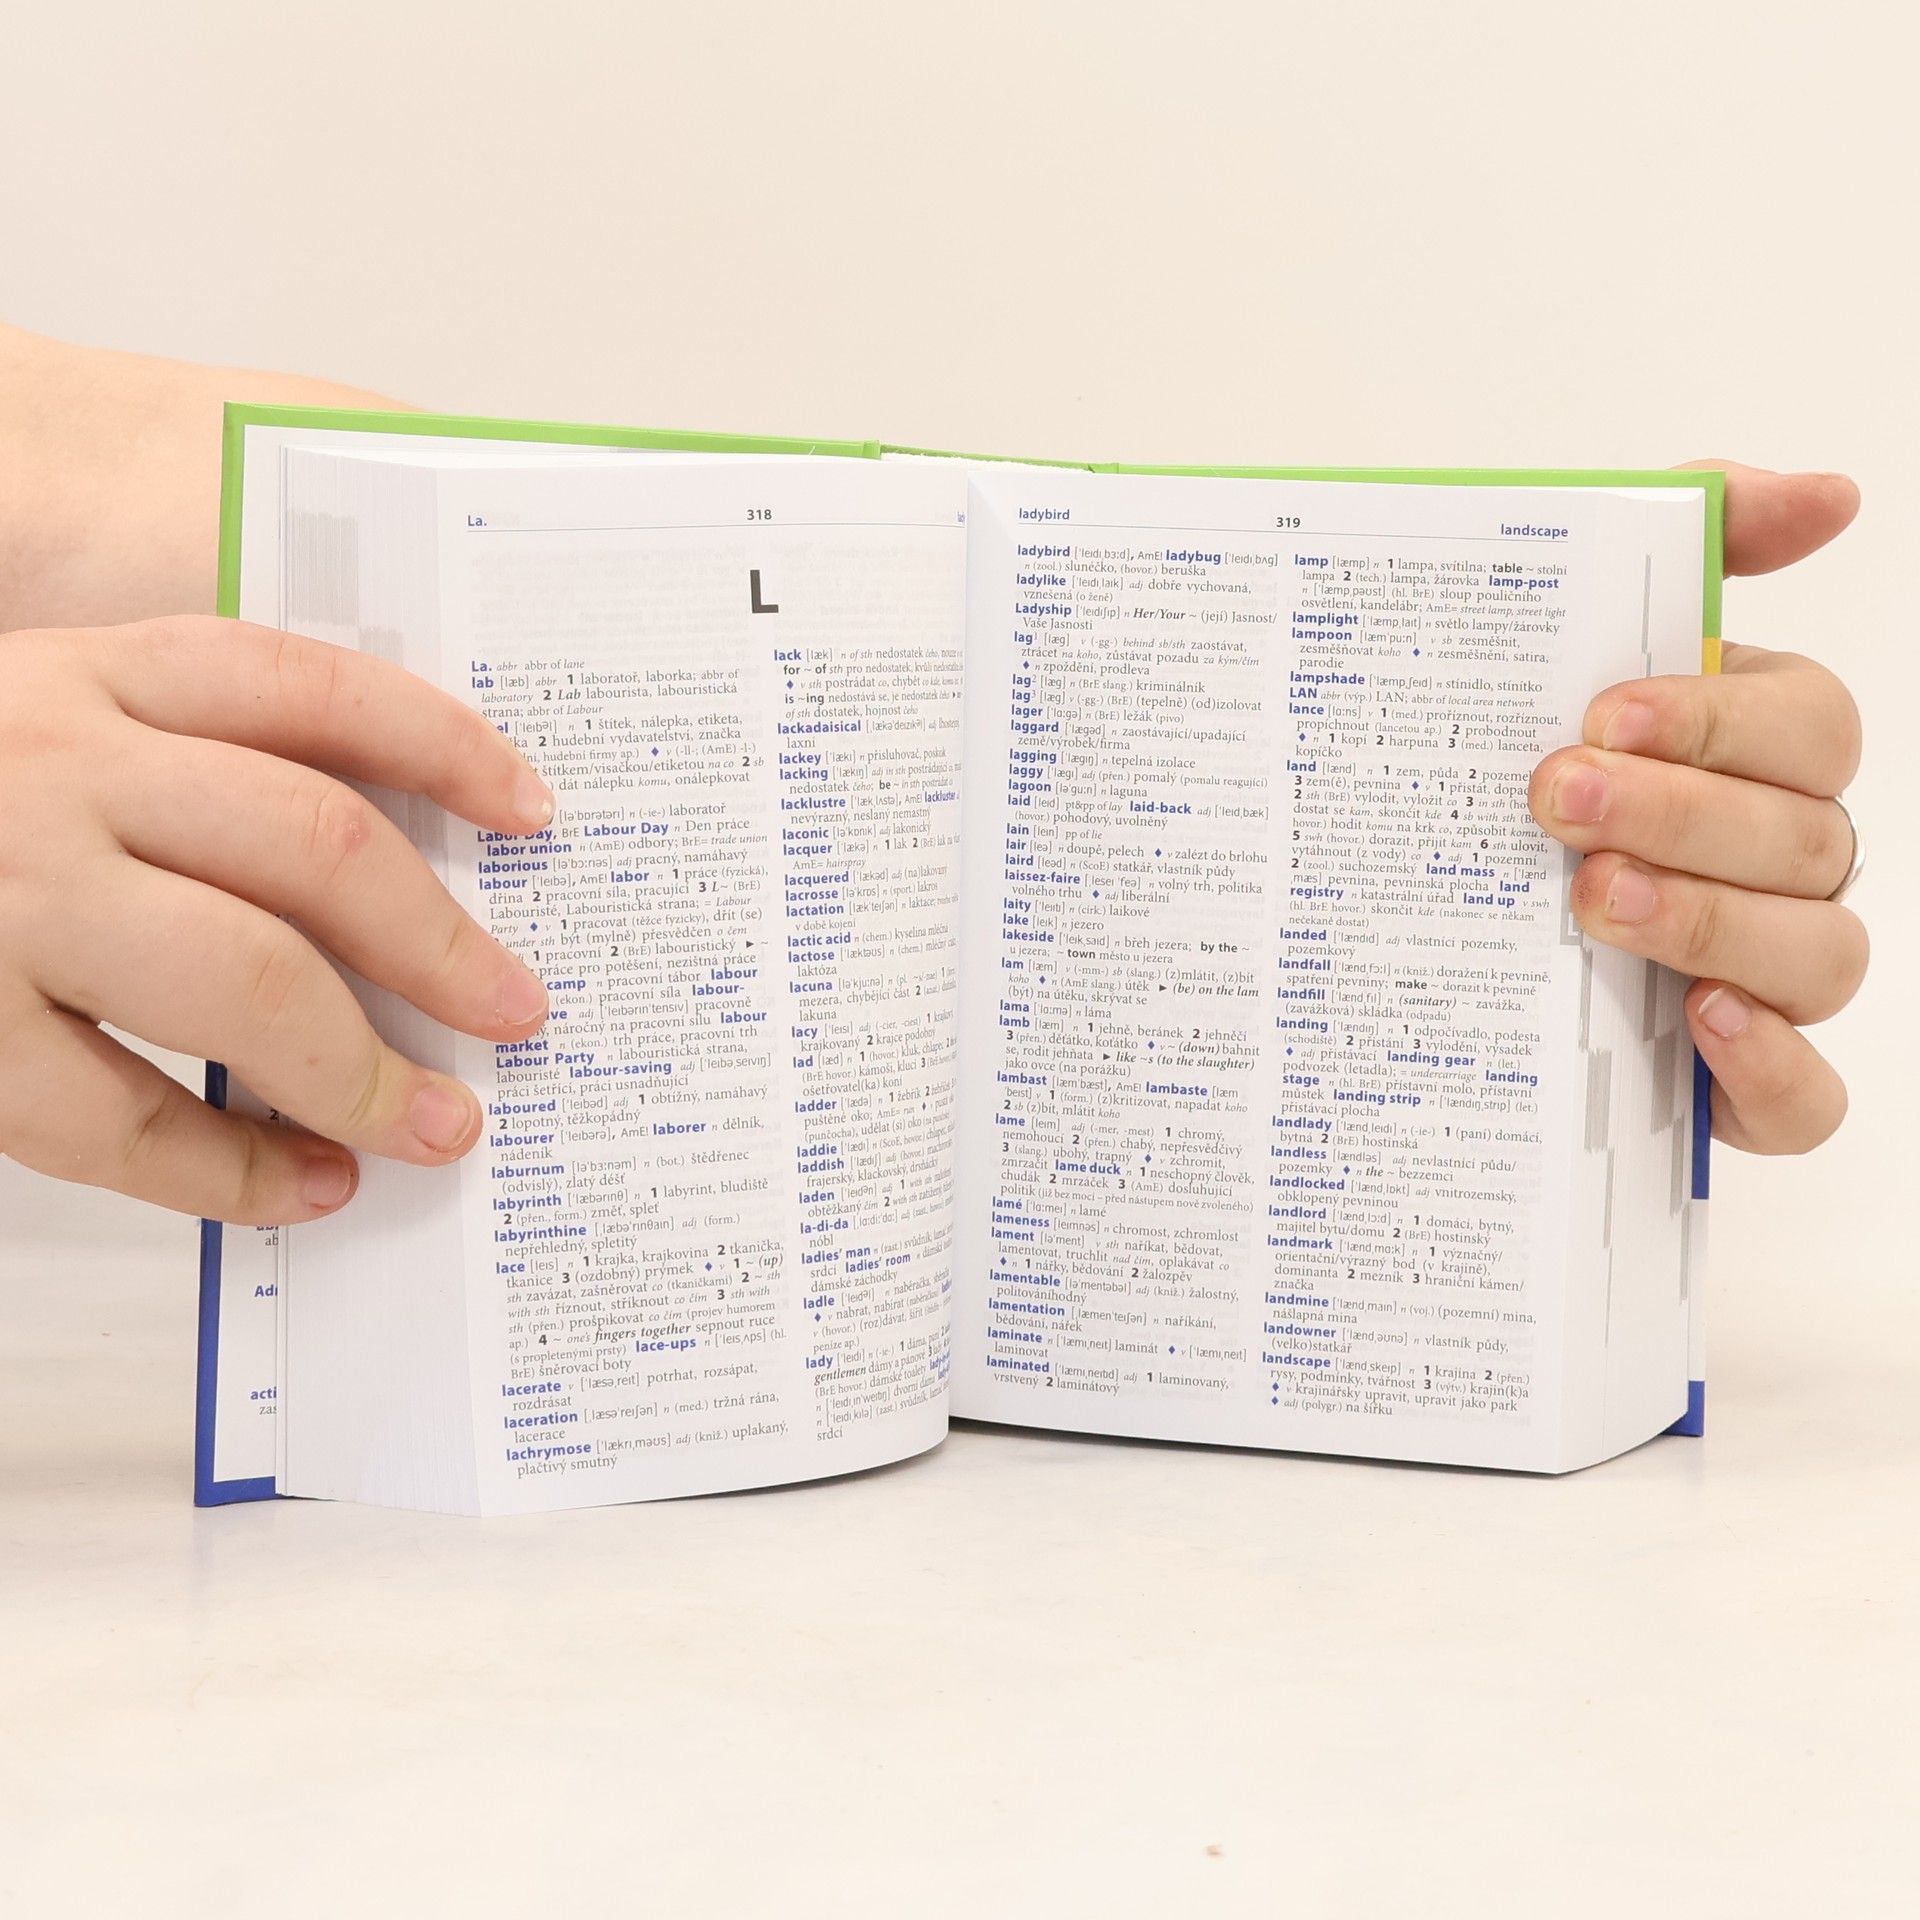 La.
318
L
La. abbr abbr of lane
lab [læb] abbr 1 laboratoř, laborka; abbr of
laboratory 2 Lab labourista, labouristická
strana; abbr of Labour
['leɪbəl] n 1 štítek, nálepka, etiketa,
2 hudební vydavatelství, značka
hudební firmy ap.) ♦ v (-ll-; (AmE) -l-)
štítkem/visačkou/etiketou na co 2 sb
dát nálepku komu, onálepkovat
n (-ie-) laboratoř
Labor Day, BrE Labour Day n Den práce
labor union n (AmE) odbory; BrE= trade union
laborious [lə'bɔːrɪəs] adj pracný, namáhavý
labour ['leɪbə], AmE! labor n 1 práce (fyzická),
dřina 2 pracovní síla, pracující 3 L~ (BrE)
Labouristé, Labouristická strana; = Labour
Party ♦ v 1 pracovat (těžce fyzicky), dřít (se)
under sth být (mylně) přesvědčen o čem
1 pracovní 2 (BrE) labouristický ► ~
práce pro potěšení, nezištná práce
camp n pracovní tábor labour
(ekon.) pracovní síla labour-
['leɪbərɪn'tensɪv] pracovně
náročný na pracovní sílu labour
market n (ekon.) trh práce, pracovní trh
Labour Party n labouristická strana,
labouristé labour-saving adj ['leɪbəˌseɪvɪŋ]
práci šetřící, práci usnadňující
laboured ['leɪbəd] adj 1 obtížný, namáhavý
2 lopotný, těžkopádný
labourer ['leɪbərə], AmE! laborer n dělník,
nádeník
laburnum [lə'bɜːnəm] n (bot.) štědřenec
(odvislý), zlatý déšť
labyrinth ['læbərɪnθ] n 1 labyrint, bludiště
2 (přen., form.) změť, splet
labyrinthine [ˌlæbə'rɪnθaɪn] adj (form.)
nepřehledný, spletitý
lace [leɪs] n 1 krajka, krajkovina 2 tkanička,
tkanice 3 (ozdobný) prýmek ♦ v 1 ~ (up)
sth zavázat, zašněrovat co (tkaničkami) 2 ~ sth
with sth říznout, stříknout co čím 3 sth with
sth (přen.) prošpikovat co čím (projev humorem
ap.) 4 ~ one's fingers together sepnout ruce
(s propletenými prsty) lace-ups n ['leɪsˌʌps] (hl.
BrE) šněrovací boty
lacerate v ['læsəˌreɪt] potrhat, rozsápat,
rozdrásat
laceration [ˌlæsə'reɪʃən] n (med.) tržná rána,
lacerace
lachrymose ['lækrɪˌməʊs] adj (kniž.) uplakaný,
plačtivý smutný
lack [læk] n of sth nedostatek čeho, nouze
for ~ of sth pro nedostatek, kvůli nedostatku
♦ v sth postrádat co, chybět co kde, komu
is ~ing nedostává se, je nedostatek čeho
of sth dostatek, hojnost čeho
lackadaisical [ˌlækə'deɪzɪkəl] adj lhostejný
laxní
lackey ['lækɪ] n přisluhovač, poskok
lacking ['lækɪŋ] adj in sth postrádající co
nedostatek čeho; be ~ in sth postrádat
lacklustre ['lækˌlʌstə], AmE! lackluster
nevýrazný, neslaný nemastný
laconic [lə'kɒnɪk] adj lakonický
lacquer ['lækə] n 1 lak 2 (BrE) lak na
AmE= hairspray
lacquered ['lækəd] adj (na)lakovaný
lacrosse [lə'krɒs] n (sport.) lakros
lactation [læk'teɪʃən] n laktace;
v době kojení
lactic acid n (chem.) kyselina mléčná
lactose ['læktəʊs] n (chem.) mléčný
laktóza
lacuna [lə'kjuːnə] n (pl. ~s/-nae) 1
mezera, chybějící část 2
lakuna
lacy ['leɪsɪ] adj (-cier, -ciest) 1 krajkový
krajkovaný 2 krajce podobný
lad [læd] n 1 (hovor.) kluk, chlapec 2
(BrE hovor.) kámoši, kluci 3
ošetřovatel(ka) koní
ladder ['lædə] n 1 žebřík 2
puštěné oko; AmE= run ♦ v
(punčocha), udělat (si) oko
laddie ['lædɪ] n (ScoE, hovor.) chlapec
laddish ['lædɪʃ] adj (hovor.)
frajerský, klackovský, drsňácký
laden ['leɪdən] adj 1 with sth
obtěžkaný čím 2 with sth
la-di-da [ˌlɑːdiː'dɑː] adj
nóbl
ladies' man n (zast.) svůdník
srdcí ladies' room n
dámské záchodky
ladle ['leɪdəl] n naběračka, sběračka
♦ v nabrat, nabírat
v (hovor.) (roz)dávat, šířit
peníze ap.)
lady ['leɪdɪ] n (-ie-) 1 dáma, paní 2
gentlemen dámy a pánové 3
(BrE hovor.) dámské toalety
n ['leɪdɪɪn'weɪtɪŋ] dvorní dáma
n ['leɪdɪˌkɪlə] (zast.) svůdník
srdcí
ladybird
319
landscape
ladybird ['leɪdɪˌbɜːd], AmE! ladybug ['leɪdɪˌbʌg]
n (zool.) slunéčko, (hovor.) beruška
ladylike ['leɪdɪˌlaɪk] adj dobře vychovaná,
vznešená (o ženě)
Ladyship ['leɪdɪʃɪp] n Her/Your ~ (její) Jasnost/
Vaše Jasnosti
lag¹ [læg] v (-gg-) behind sb/sth zaostávat,
ztrácet na koho, zůstávat pozadu za kým/čím
♦ n zpoždění, prodleva
lag² [læg] n (BrE slang.) kriminálník
lag³ [læg] v (-gg-) (BrE) (tepelně) (od)izolovat
lager ['lɑːgə] n (BrE) ležák (pivo)
laggard ['lægəd] n zaostávající/upadající
země/výrobek/firma
lagging ['lægɪŋ] n tepelná izolace
laggy ['lægɪ] adj (přen.) pomalý (pomalu reagující)
lagoon [lə'guːn] n laguna
laid [leɪd] pt&pp of lay laid-back adj ['leɪdˌbæk]
(hovor.) pohodový, uvolněný
lain [leɪn] pp of lie
lair [leə] n doupě, pelech ♦ v zalézt do brlohu
laird [leəd] n (ScoE) statkář, vlastník půdy
laissez-faire [ˌleseɪ 'feə] n volný trh, politika
volného trhu ♦ adj liberální
laity ['leɪɪtɪ] n (círk.) laikové
lake [leɪk] n jezero
lakeside ['leɪkˌsaɪd] n břeh jezera; by the ~
u jezera; ~ town město u jezera
lam [læm] v (-mm-) sb (slang.) (z)mlátit, (z)bít
koho ♦ n (AmE slang.) útěk ► (be) on the lam
(být) na útěku, skrývat se
lama ['lɑːmə] n láma
lamb [læm] n 1 jehně, beránek 2 jehněčí
3 (přen.) děťátko, koťátko ♦ v ~ (down) bahnit
se, rodit jehňata ► like ~s (to the slaughter)
jako ovce (na porážku)
lambast [læm'bæst], AmE! lambaste [læm
beɪst] v 1 (form.) (z)kritizovat, napadat koho
2 sb (z)bít, mlátit koho
lame [leɪm] adj (-mer, -mest) 1 chromý,
nemohoucí 2 (přen.) chabý, nepřesvědčivý
3 (slang.) ubohý, trapný ♦ v zchromit,
zmrzačit lame duck n 1 neschopný člověk,
chudák 2 mrzáček 3 (AmE) dosluhující
politik (již bez moci – před nástupem nově zvoleného)
lamé ['lɑːmeɪ] n lamé
lameness [leɪmnəs] n chromost, zchromlost
lament [lə'ment] v sth naříkat, bědovat,
lamentovat, truchlit nad čím, oplakávat co
♦ n 1 nářky, bědování 2 žalozpěv
lamentable [lə'mentəbəl] adj (kniž.) žalostný,
politováníhodný
lamentation [ˌlæmen'teɪʃən] n naříkání,
bědování, nářek
laminate n ['læmɪˌneɪt] laminát ♦ v ['læmɪˌneɪt]
laminovat
laminated ['læmɪˌneɪtɪd] adj 1 laminovaný,
vrstvený 2 laminátový
lamp [læmp] n 1 lampa, svítilna; table ~ stolní
lampa 2 (tech.) lampa, žárovka lamp-post
n ['læmpˌpəʊst] (hl. BrE) sloup pouličního
osvětlení, kandelábr; AmE= street lamp, street light
lamplight ['læmpˌlaɪt] n světlo lampy/žárovky
lampoon [læm'puːn] v sb zesměšnit,
zesměšňovat koho ♦ n zesměšnění, satira,
parodie
lampshade ['læmpˌʃeɪd] n stínidlo, stínítko
LAN abbr (výp.) LAN; abbr of local area network
lance [lɑːns] v 1 (med.) proříznout, rozříznout,
propíchnout (lancetou ap.) 2 probodnout
♦ n 1 kopí 2 harpuna 3 (med.) lanceta,
kopíčko
land [lænd] n 1 zem, půda 2 pozeme
3 zem(ě), pevnina ♦ v 1 přistát, dopad
2 sth (BrE) vylodit, vyložit co 3 in sth
dostat se kam, skončit kde 4 sb with sth
hovor.) hodit komu na krk co, způsobit komu
5 swh (hovor.) dorazit, přijít kam 6 sth ulovit,
vytáhnout (z vody) co ♦ adj 1 pozemní
2 (zool.) suchozemský land mass n ['lænd
ˌmæs] pevnina, pevninská plocha land
registry n katastrální úřad land up v swh
(hl. BrE hovor.) skončit kde (nakonec se někam
nečekaně dostat)
landed ['lændɪd] adj vlastnící pozemky,
pozemkový
landfall ['lændˌfɔːl] n (kniž.) doražení k pevnině,
spatření pevniny; make ~ dorazit k pevnině
landfill ['lændˌfɪl] n (sanitary) ~ zavážka,
(zavážková) skládka (odpadu)
landing ['lændɪŋ] n 1 odpočívadlo, podesta
(schodiště) 2 přistání 3 vylodění, výsadek
♦ adj přistávací landing gear n (let.)
podvozek (letadla); = undercarriage landing
stage n (hl. BrE) přístavní molo, přístavní
můstek landing strip n ['lændɪŋˌstrɪp] (let.)
přistávací plocha
landlady ['lændˌleɪdɪ] n (-ie-) 1 (paní) domácí,
bytná 2 (BrE) hostinská
landless ['lændləs] adj nevlastnící půdu/
pozemky ♦ n the ~ bezzemci
landlocked ['lændˌlɒkt] adj vnitrozemský,
obklopený pevninou
landlord ['lændˌlɔːd] n 1 domácí, bytný,
majitel bytu/domu 2 (BrE) hostinský
landmark ['lændˌmɑːk] n 1 význačný/
orientační/výrazný bod (v krajině),
dominanta 2 mezník 3 hraniční kámen/
značka
landmine ['lændˌmaɪn] n (voj.) (pozemní) mina,
nášlapná mina
landowner ['lændˌəʊnə] n vlastník půdy,
(velko)statkář
landscape ['lændˌskeɪp] n 1 krajina 2 (přen.)
rysy, podmínky, tvářnost 3 (výtv.) krajin(k)a
♦ v krajinářsky upravit, upravit jako park
♦ adj (polygr.) na šířku